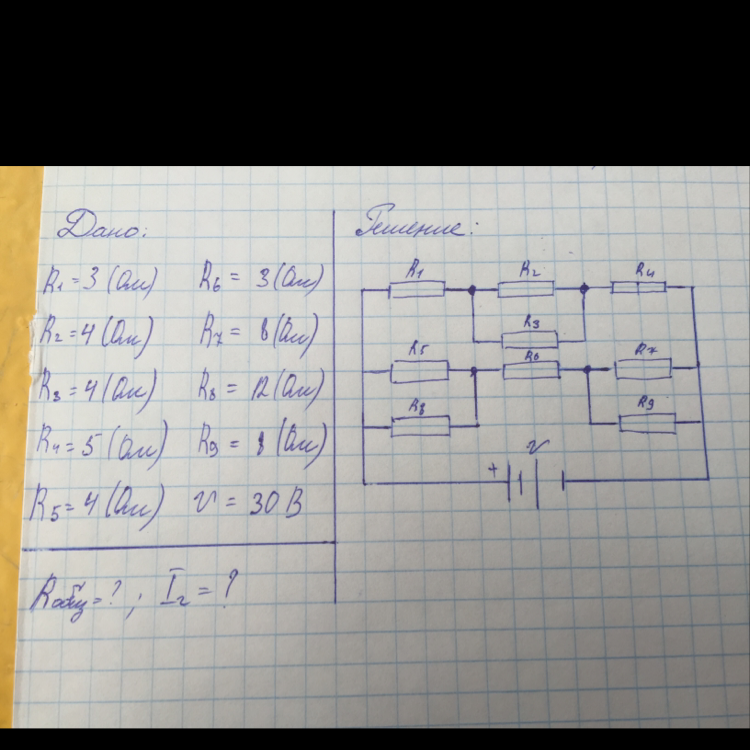 Дано:
R1 = 3 (Ом) R6 = 3 (Ом)
R2 = 4 (Ом) R7 = 8 (Ом)
R3 = 4 (Ом) R8 = 12 (Ом)
R4 = 5 (Ом) R9 = 8 (Ом)
R5 = 4 (Ом) V = 30 В
Rобщ = ? ; I2 = ?
Решение:
R1 R2 R4
R3
R5 R6 R7
R8 R9
+ V